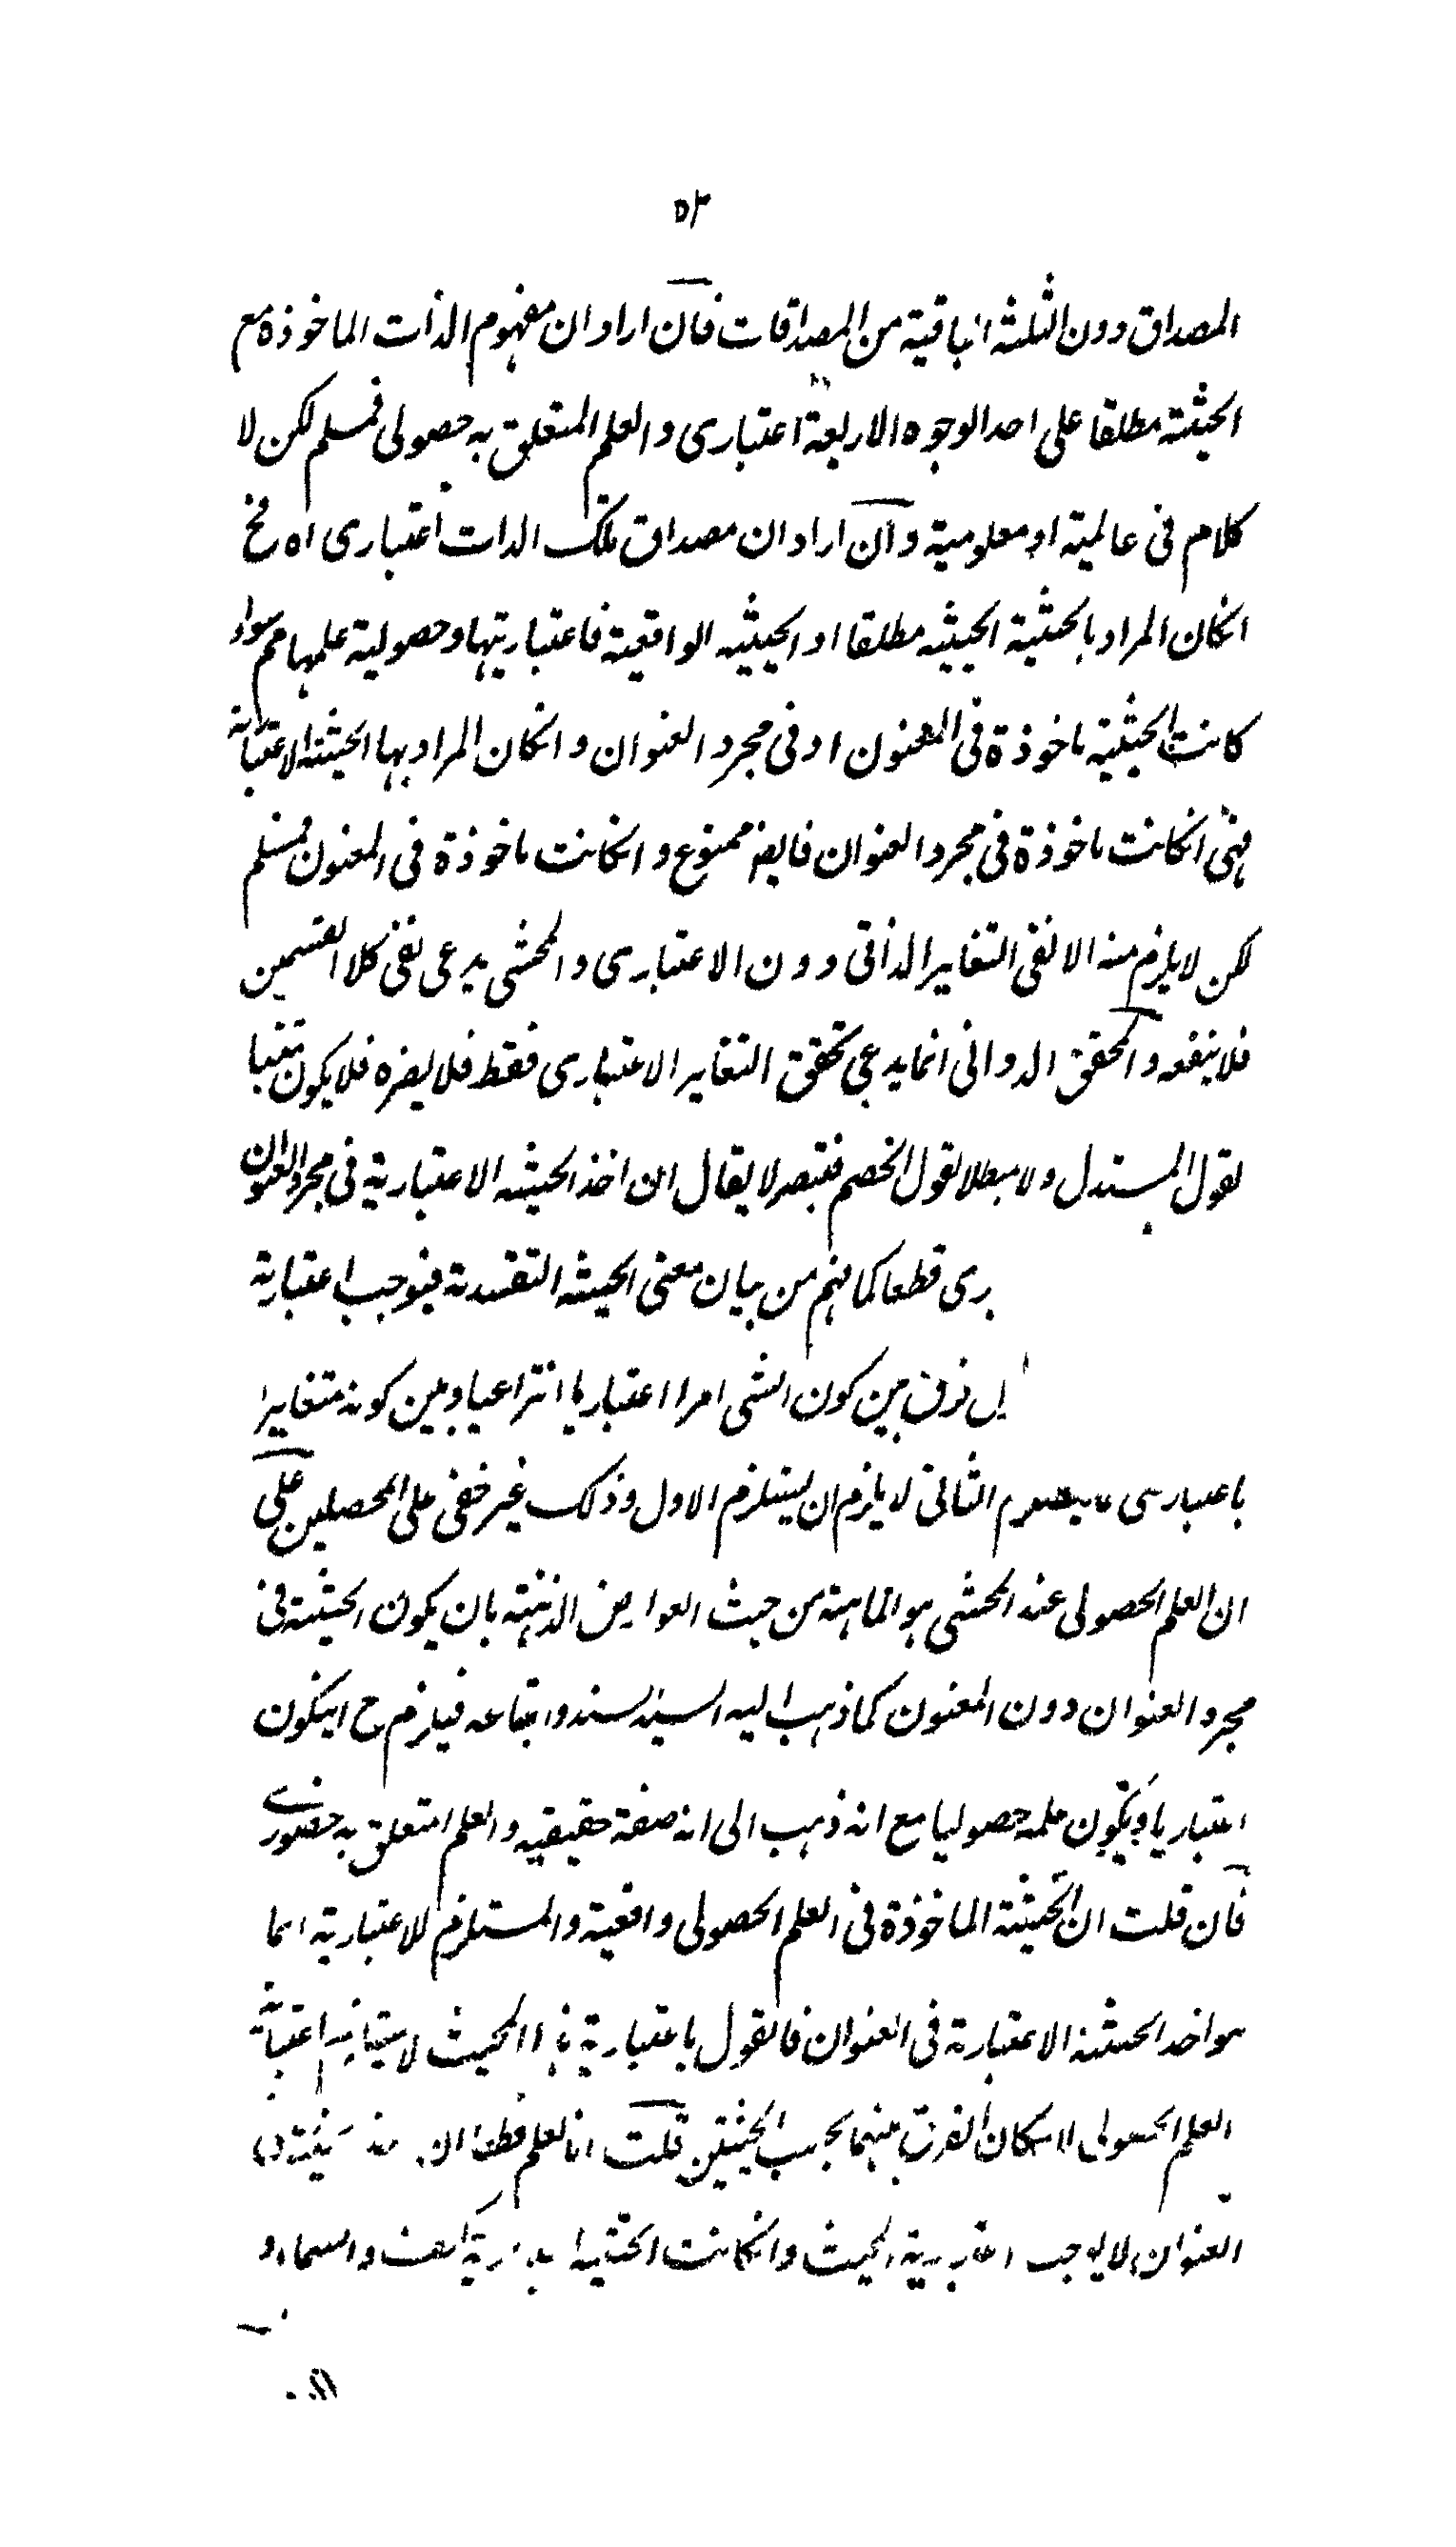 ٥٢
المصداق دون الثلثة الباقية من المصداقات فان اراد ان مفهوم الذات الماخوذة مع
الحيثية مطلقا على احد الوجوه الاربعة اعتبارى والعلم المتعلق به حصولى فمسلم لكن لا
كلام فى عالمية او معلومية وان اراد ان مصداق تلك الذات اعتبارى اه فح
انكان المراد بالحيثية الحيثيه مطلقا او الحيثيه الواقعية فاعتباريتها وحصولية علمها مم سواء
كانت الحيثية ماخوذة فى المعنون او فى مجرد العنوان وانكان المراد بها الحيثية الاعتبارية
فهى انكانت ماخوذة فى مجرد العنوان فايضا ممنوع وانكانت ماخوذة فى المعنون فمسلم
لكن لا يلزم منه الا نفى التغاير الذاتى دون الاعتبارى والمحشى يدعى نفى كلا القسمين
فلا ينفعه والمحقق الدوانى انما يدعى تحقق التغاير الاعتبارى فقط فلا يضره فلا يكون مثبتا
لقول المستدل ولا مبطلا لقول الخصم فتبصر لا يقال ان اخذ الحيثيه الاعتبارية فى مجرد العنوان
قطعا كما فهم من بيان معنى الحيثيه التقييدية فيوجب اعتبارية
فرق بين كون الشى امرا اعتباريا انتزاعيا وبين كونه متغايرا
الثانى لا يلزم ان يستلزم الاول وذلك غير خفى على المحصلين على
ان العلم الحصولى عند المحشى هو الماهية من حيث العوارض الذهنية بان يكون الحيثية فى
مجرد العنوان دون المعنون كما ذهب اليه السيد السند واتباعه فيلزم ح ان يكون
اعتباريا ويكون علمه حصوليا مع انه ذهب الى انه صفة حقيقيه والعلم المتعلق به حضورى
فان قلت ان الحيثية الماخوذة فى العلم الحصولى واقعية والمستلزم للاعتبارية انما
هو اخذ الحيثية الاعتبارية فى العنوان فالقول باعتبارية هذا المحيث لا يستلزم اعتبارية
العلم الحصولى لامكان الفرق بينهما بحسب الحيثيتين قلت انا نعلم قطعا ان
العنوان لا يوجب اعتبارية المحيث وانكانت الحيثية